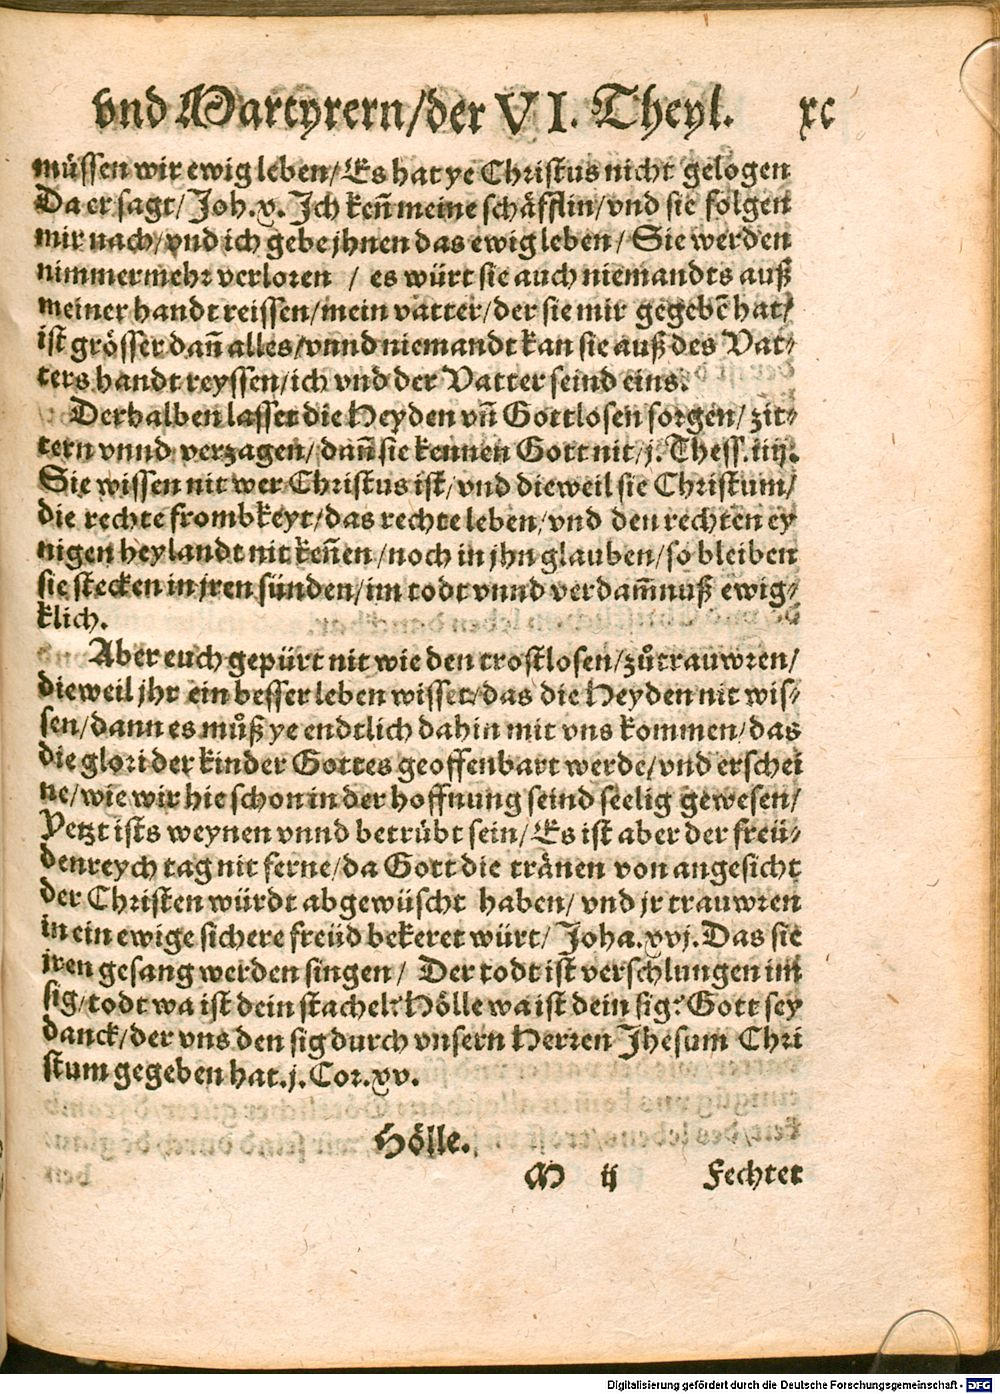 vnd Martyrern/der VI. Theyl. xc
müssen wir ewig leben/Es hat ye Christus nicht gelogen
Da er sagt/ Joh.x. Jch keñ meine schäfflin/vnd sie folgen
mir nach/vnd ich gebe jhnen das ewig leben/ Sie werden
nimmermehr verloren / es würt sie auch niemandts auß
meiner handt reissen/mein vatter/der sie mir gegebẽ hat/
ist grösser dañ alles/vnnd niemandt kan sie auß des Vat-
ters handt reyssen/ich vnd der Vatter seind eins.
Derhalben lasset die Heyden vñ Gottlosen sorgen/ zit-
tern vnnd verzagen/ dañ sie kennen Gott nit/j. Thess.iiij.
Sie wissen nit wer Christus ist/vnd dieweil sie Christum/
die rechte frombkeyt/das rechte leben/vnd den rechten ey
nigen heylandt nit keñen/noch in jhn glauben/so bleiben
sie stecken in jren sünden/im todt vnnd verdam̃nuß ewig-
klich.
Aber euch gepürt nit wie den trostlosen/zůtrauwren/
dieweil jhr ein besser leben wisset/das die Heyden nit wis-
sen/dann es můß ye endtlich dahin mit vns kommen/das
die glori der kinder Gottes geoffenbart werde/vnd erschei
ne/wie wir hie schon in der hoffnung seind seelig gewesen/
Yetzt ists weynen vnnd betrübt sein/Es ist aber der freü-
denreych tag nit ferne/da Gott die tränen von angesicht
der Christen würdt abgewüscht haben/ vnd jr trauwren
in ein ewige sichere freüd bekeret würt/ Joha.xvj.Das sie
jren gesang werden singen/ Der todt ist verschlungen im
sig/todt wa ist dein stachel? Hölle wa ist dein sig? Gott sey
danck/der vns den sig durch vnsern Herren Jhesum Chri
stum gegeben hat.j.Cor.xv.
Hölle.
M ij Fechtet
Digitalisierung gefördert durch die Deutsche Forschungsgemeinschaft - DFG